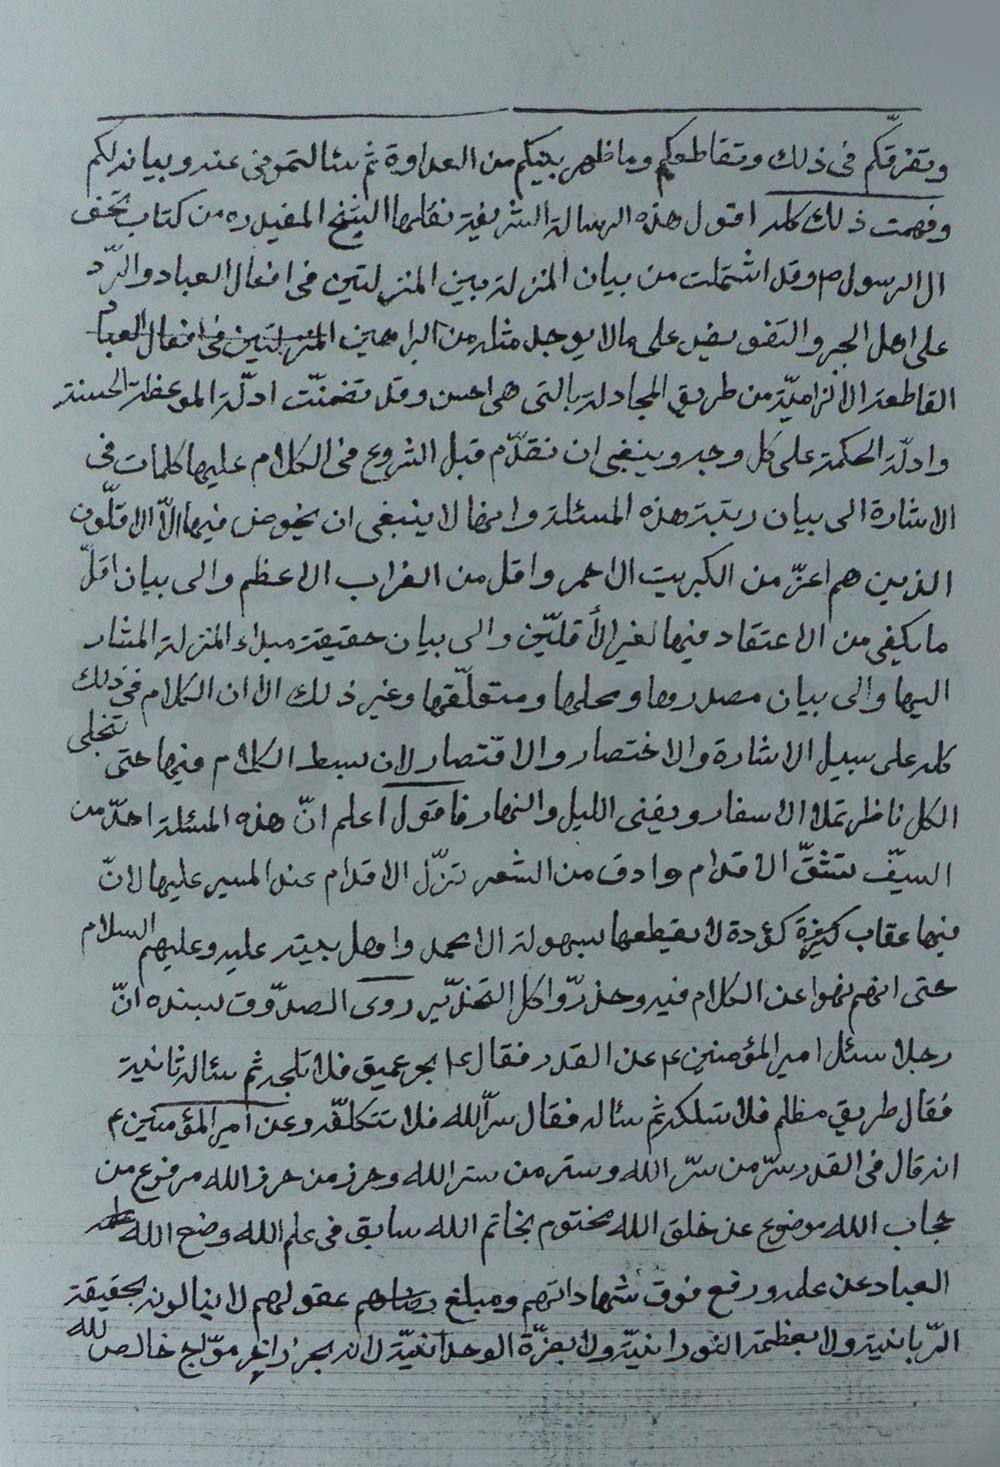 وتفرقكم فى ذلك وتقاطعكم وماظهر بينكم من العداوة ثم سئالتمونى عنه وبيانه لكم
وفهمت ذلك كله اقول هذه الرسالة الشريفة نقلها الشيخ المفيد ره من كتاب تحف
ال الرسول ص وقد اشتملت من بيان المنزلة بين المنزلتين فى افعال العباد والردّ
على اهل الجبر والتفويض على مالا يوجد مثله من البراهين المنزلتين فى افعال العباد
القاطعة الالزاميّة من طريق المجادلة بالتى هى احسن وقد تضمنّت ادلّة الموعظة الحسنة
وادلّة الحكمة على كل وجه وينبغى ان نقدّم قبل الشروع فى الكلام عليها كلمات فى
الاشارة الى بيان رتبة هذه المسئلة وانها لا ينبغى ان يخوض فيها الّا الاقلّون
الذين هم اعزّ من الكبريت الاحمر واقل من الغراب الاعظم والى بيان اقلّ
ما يكفى من الاعتقاد فيها لغير الأقلّين والى بيان حقيقة مبداء المنزلة المشار
اليها والى بيان مصدرها ومحلها ومتعلّقها وغير ذلك الا ان الكلام فى ذلك
كله على سبيل الاشارة والاختصار والاقتصار لان بسط الكلام فيها حتى تنجلى
الكل ناظر تملا الاسفار ويفنى الليل والنهار فاقول اعلم انّ هذه المسئلة احدّ من
السيّف تشقّ الاقدام وادق من الشعر تزّل الاقدام عند المسير عليها لانّ
فيها عقاب كثيرة كؤدة لا يقطعها بسهولة الا محمد واهل بيته عليه وعليهم السلام
حتى انهم نهوا عن الكلام فيه وحذرّوا كل التحذّير روى الصدّوق بسنده انّ
رجلا سئل امير المؤمنين ع عن القدر فقال ع بحر عميق فلا تلجه ثم سئاله ثانية
فقال طريق مظلم فلا تسلكه ثم سئاله فقال سرّ الله فلا تتكلفّه وعن امير المؤمنين ع
انه قال فى القدر سرّ من سرّ الله وستر من ستر الله وحرز من حرز الله مرفوع من
حجاب الله موضوع عن خلق الله مختوم بخاتم الله سابق فى علم الله وضع الله علمه
العباد عن علمه ورفع فوق شهاداتهم ومبلغ عقولهم لا ينالونه بحقيقة
الرّبانية ولا بعظمة النورانيّة ولا بعزّة الوحدانيّة لانه بحر زاخر موّاج خالص لله